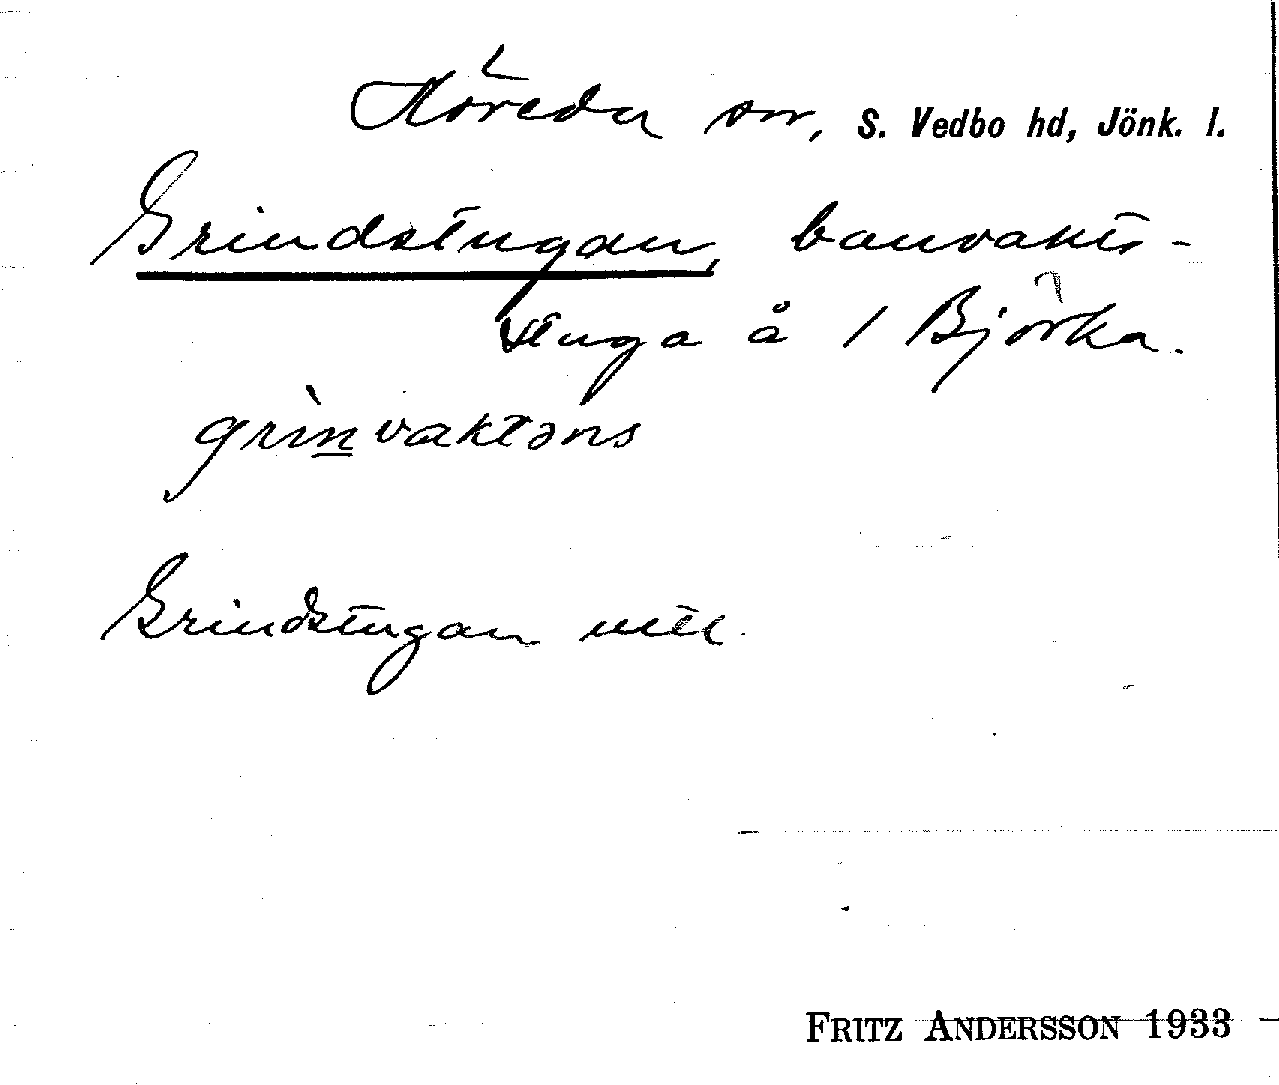 Höreda sn, S. Vedbo hd, Jönk. l.
Grindstugan, banvakts-
stuga å 1 Björka.
grìnvaktəns
Grindstugan
FRITZ ANDERSSON 1933